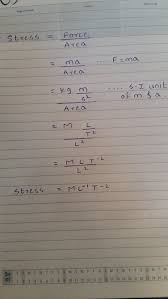 Stress = Force
Area
= ma .... F=ma
Area
= kg m/s² .... S.I unit
Area of m & a.
= M L/T²
L²
= M L T⁻²
L²
Stress = M L⁻¹ T⁻²